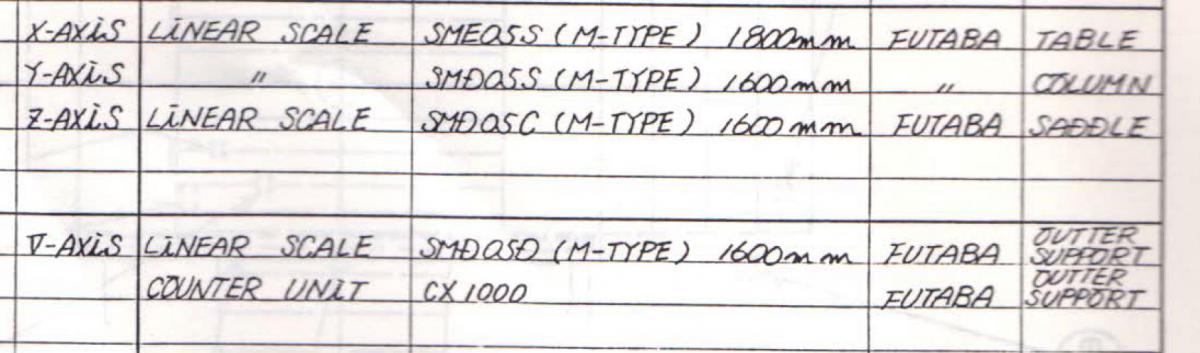 X-AXIS LINEAR SCALE SME05S (M-TYPE) 1800mm FUTABA TABLE
Y-AXIS " SMD05S (M-TYPE) 1600mm " COLUMN
Z-AXIS LINEAR SCALE SMD05C (M-TYPE) 1600mm FUTABA SADDLE
V-AXIS LINEAR SCALE SMD05D (M-TYPE) 1600mm FUTABA OUTTER SUPPORT
COUNTER UNIT CX1000 FUTABA OUTTER SUPPORT